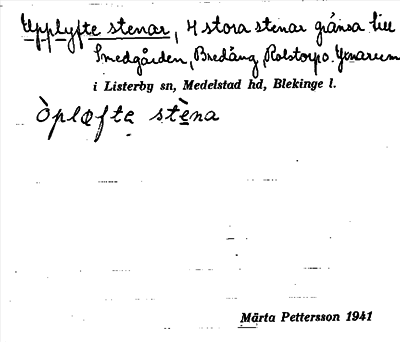 Upplyfte stenar, 4 stora stenar gränsa till
Smedgården, Bredång, Rolstorp o. Yxnarum
i Listerby sn, Medelstad hd, Blekinge l.
Òplæfte stèna
Märta Pettersson 1941